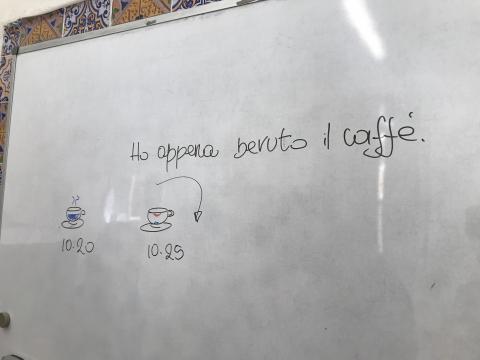 Ho appena bevuto il caffè.
10.20
10.25